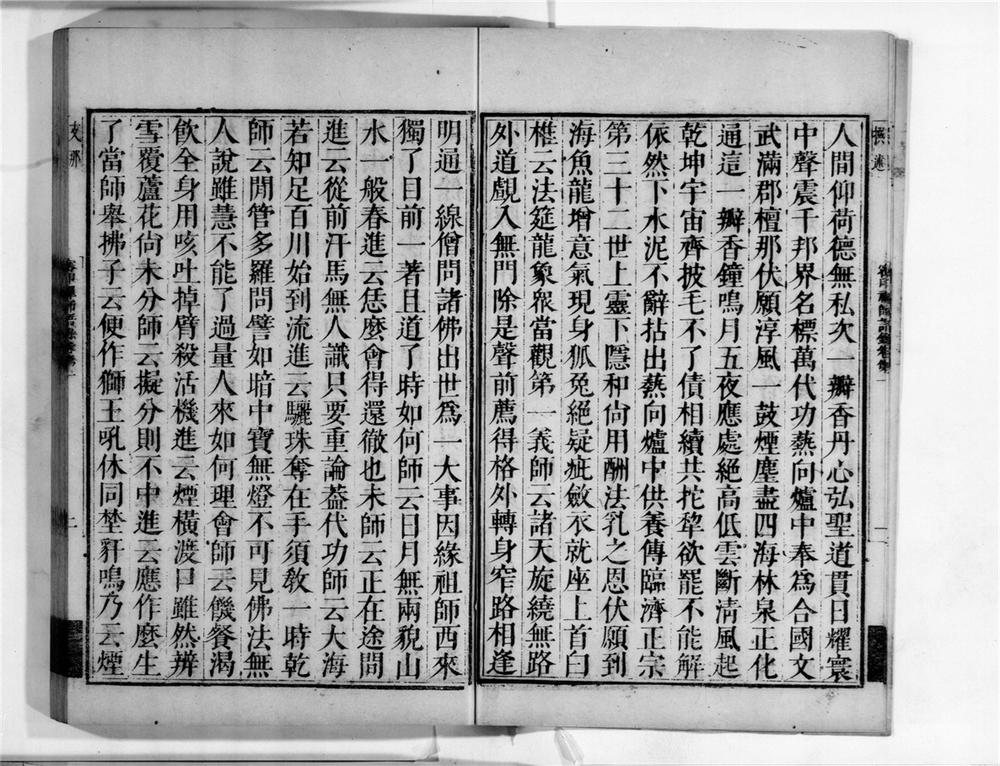 人間仰荷德無私次一瓣香丹心弘聖道貫日耀寰
中聲震千邦界名標萬代功爇向爐中奉爲合國文
武滿郡檀那伏願淳風一鼓煙塵盡四海林泉正化
通這一瓣香鐘鳴月五夜應處絕高低雲斷淸風起
乾坤宇宙齊披毛不了債相續共拕犂欲罷不能解
依然下水泥不辭拈出爇向爐中供養傳臨濟正宗
第三十二世上靈下隱和尙用酬法乳之恩伏願到
海魚龍增意氣現身狐兔絕疑疵斂衣就座上首白
椎云法筵龍象衆當觀第一義師云諸天旋繞無路
外道覷入無門除是聲前薦得格外轉身窄路相逢
明通一線僧問諸佛出世爲一大事因緣祖師西來
獨了目前一著且道了時如何師云日月無兩貌山
水一般春進云恁麼會得還徹也未師云正在途間
進云從前汗馬無人識只要重論葢代功師云大海
若知足百川始到流進云驪珠奪在手須敎一時乾
師云閒管多羅問譬如暗中寶無燈不可見佛法無
人說雖慧不能了過量人來如何理會師云饑餐渴
飮全身用咳吐掉臂殺活機進云煙橫渡口雖然辨
雪覆蘆花尙未分師云擬分則不中進云應作麼生
了當師舉拂子云便作獅王吼休同埜犴鳴乃云煙
支那
撰述
二